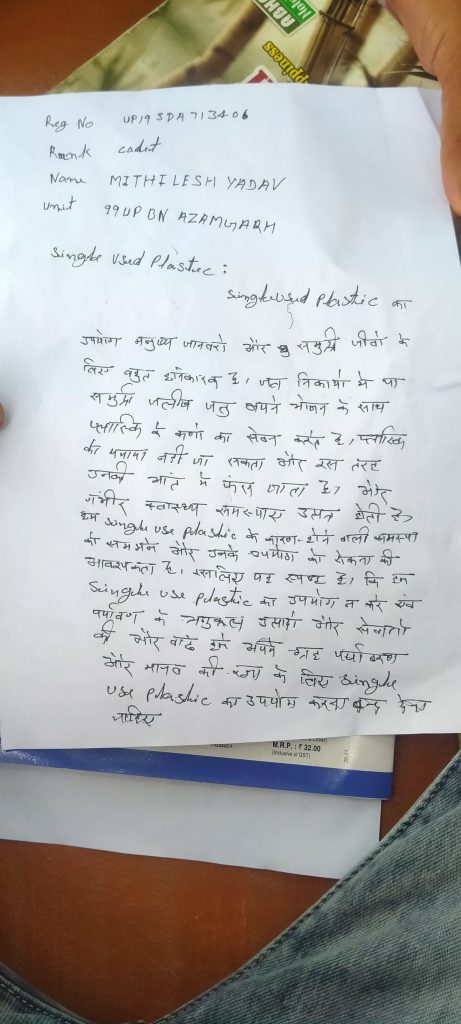 Reg No UP19SDA713406
Rank cadet
Name MITHILESH YADAV
Unit 99 UP BN AZAMGARH
Single Used Plastic :
Single used plastic का
उपयोग मनुष्य जानवरो और समुद्री जीवो के
लिए बहुत हानिकारक है, जल निकायो मे या
समुद्री जलीय जंतु अपने भोजन के साथ
प्लास्टिक के कणो का सेवन करते है, प्लास्टिक
को पचाया नही जा सकता और इस तरह
उनकी आंत मे फंस जाता है, और
गंभीर स्वास्थ्य समस्याए उत्पन्न होती है,
हम single use plastic के कारण होने वाली समस्या
को समझने और उनके उपयोग को रोकना की
आवश्यकता है, इसलिए यह स्पष्ट है, कि हम
single use plastic का उपयोग न करे एवं
पर्यावरण के अनुकूल उत्पादो और सेवाओ
की और बढे हमे अपने ग्रह पर्यावरण
और मानव की रक्षा के लिए single
use plastic का उपयोग करना बन्द देना
चाहिए
M.R.P. : ₹ 32.00
(Inclusive of GST)